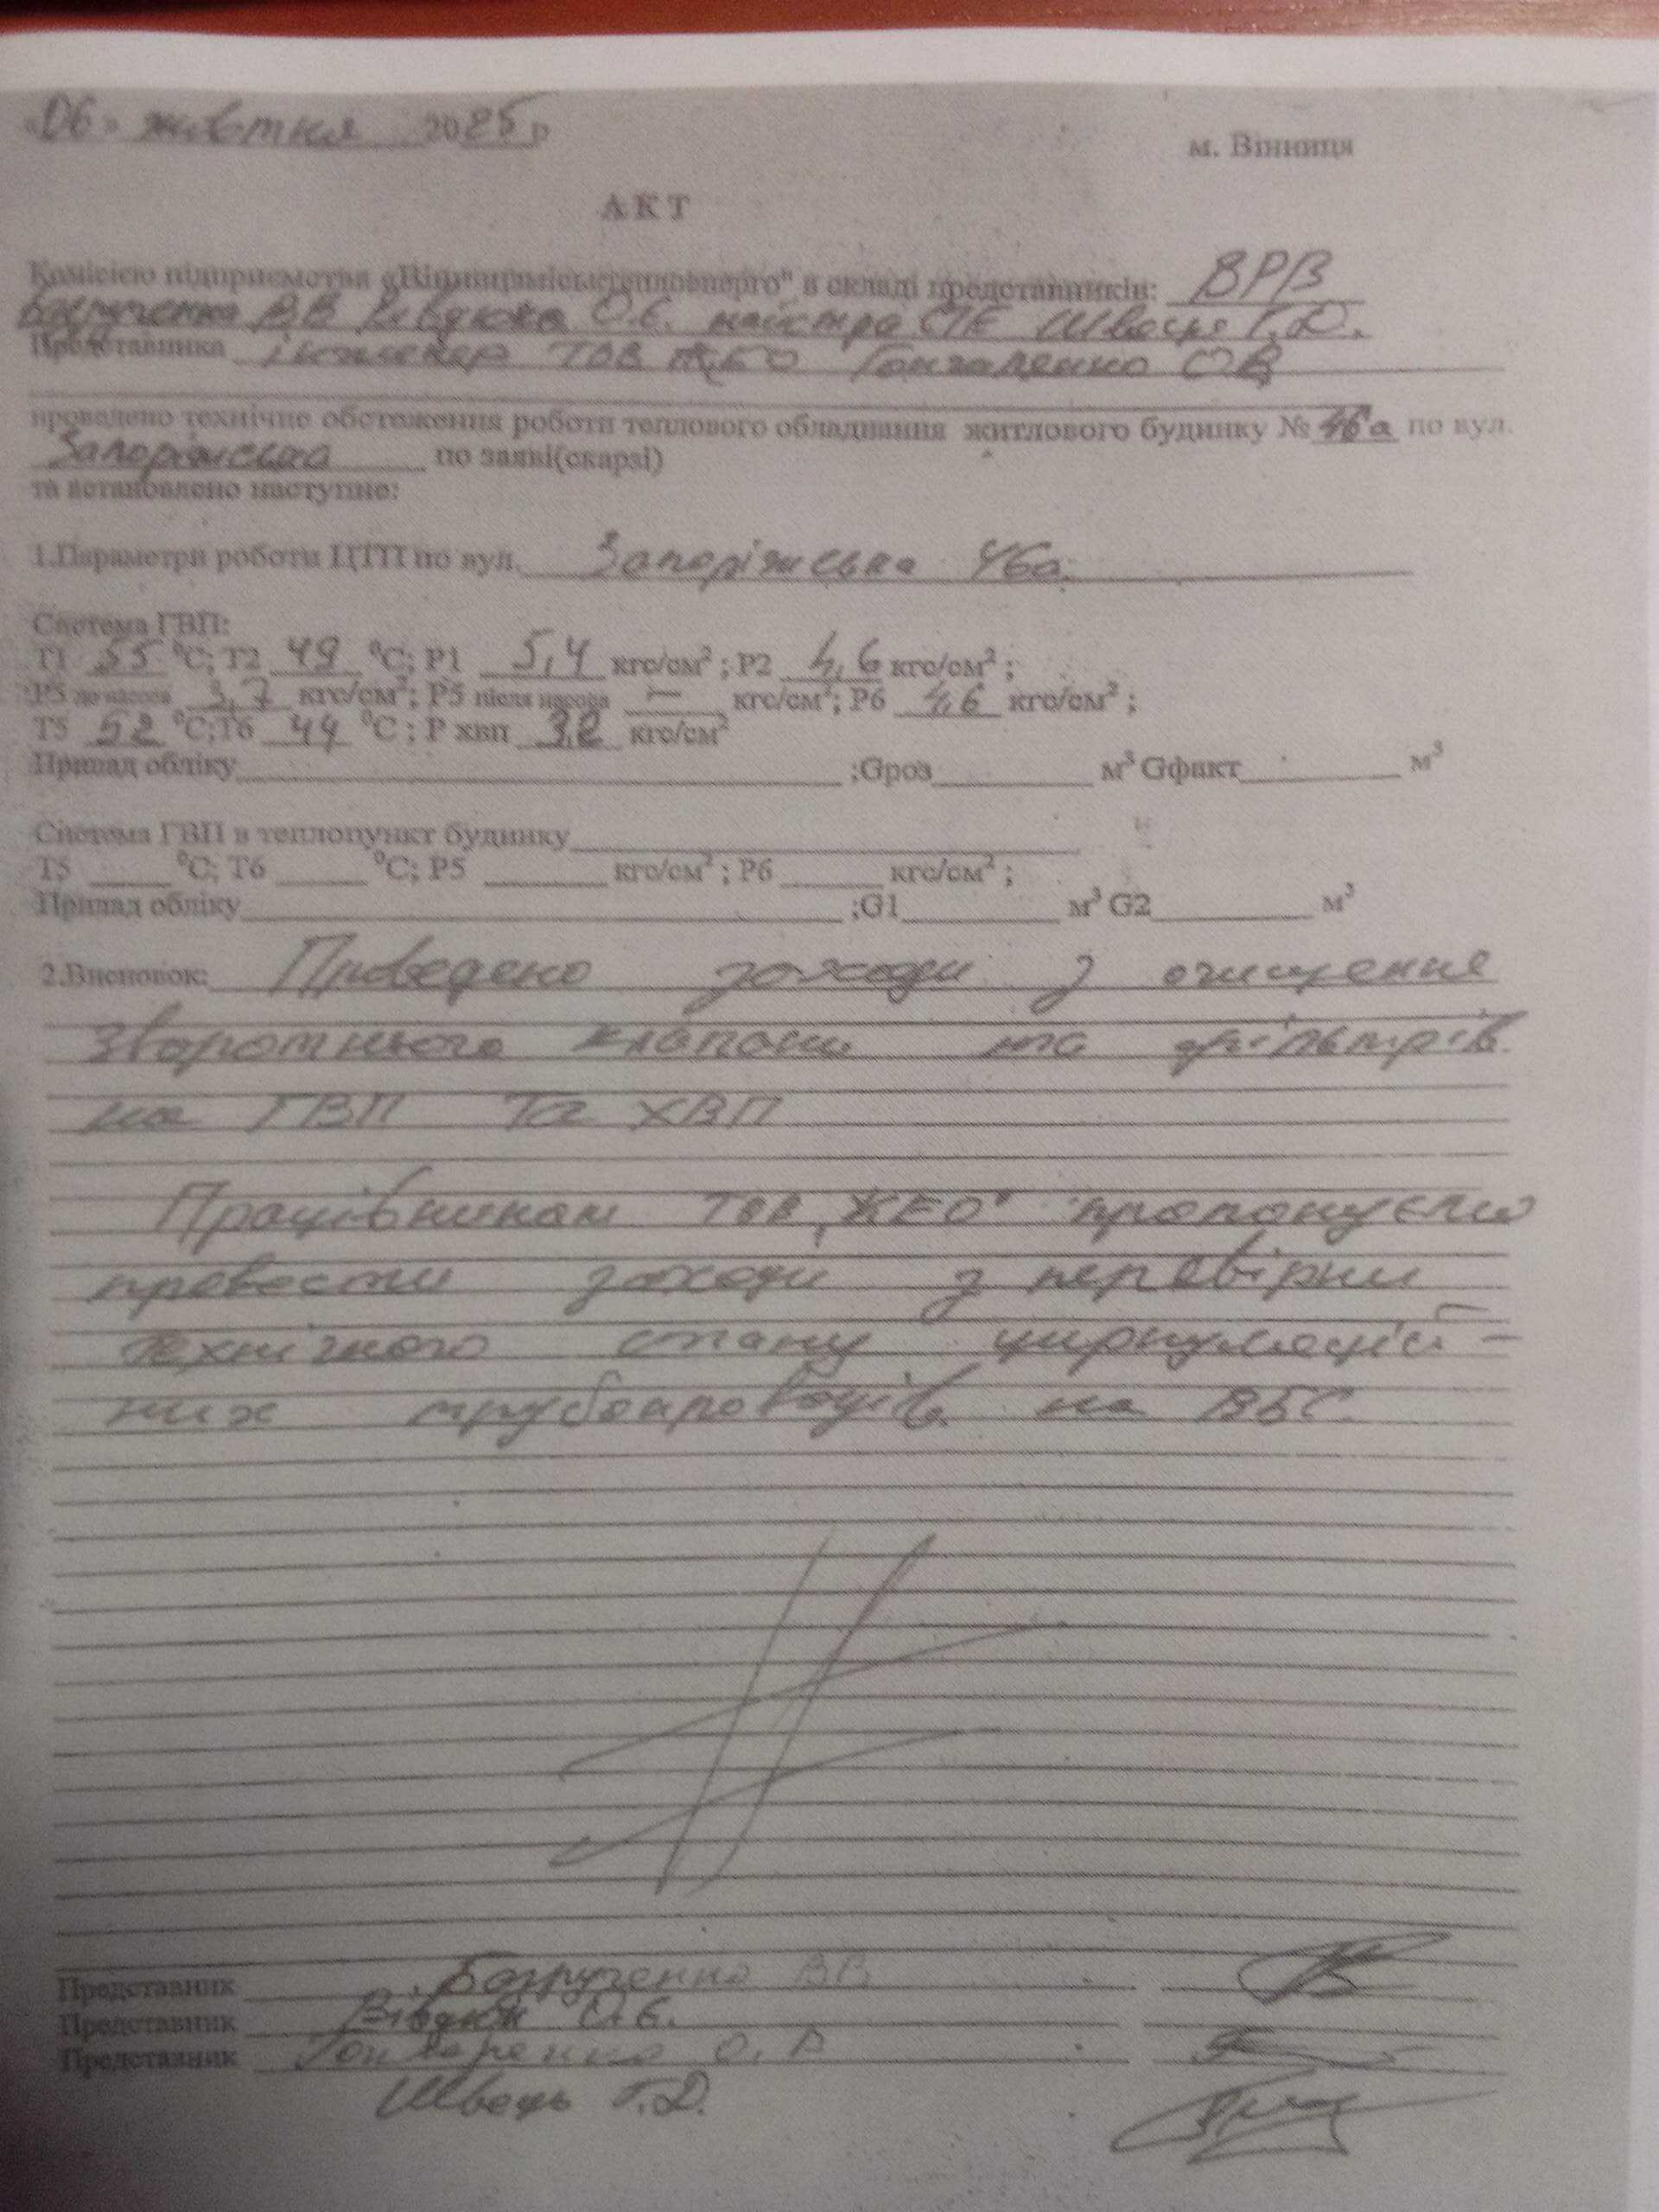 «06» жовтня 2025 р
м. Вінниця
АКТ
Комісією підприємства «Вінницяміськтеплоенерго" в складі представників: ВРВ
В.В. О.Є. майстра Швець Г.Д.
Представника інженер ТОВ ЖЕО Гончаренко О.В
проведено технічне обстеження роботи теплового обладнання житлового будинку № 46а по вул.
Запорізська по заяві(скарзі)
та встановлено наступне:
1.Параметри роботи ЦТП по вул. Запоріжська 46а.
Система ГВП:
Т1 55 ⁰С; Т2 49 ⁰С; Р1 5,4 кгс/см²; Р2 4,6 кгс/см²;
Р5 до насоса 3,7 кгс/см²; Р5 після насоса — кгс/см²; Р6 4,6 кгс/см²;
Т5 52 ⁰С; Т6 44 ⁰С; Р хвп 3,2 кгс/см²
Прилад обліку ;Gроз м³ Gфакт м³
Система ГВП в теплопункт будинку
Т5 ⁰С; Т6 ⁰С; Р5 кгс/см²; Р6 кгс/см²;
Прилад обліку ;G1 м³ G2 м³
2.Висновок: Проведено заходи з очищення
зворотнього клапана та фільтрів
на ГВП та ХВП
Працівникам ТОВ „ЖЕО" пропонуємо
провести заходи з перевірки
технічного стану циркуляцій-
них трубопроводів на ВБС.
Представник В.В.
Представник О.Є.
Представник Гончаренко О.В
Швець Г.Д.